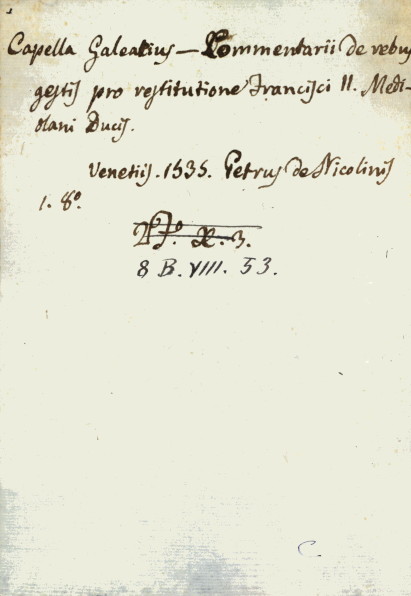 Capella Galeatius — Commentarii de rebus
gestis pro restitutione Francisci II. Medi-
olani Ducis.
Venetiis. 1535. Petrus de Nicolinis
1. 8º.
X. 3.
8 B. VIII. 53.
C.